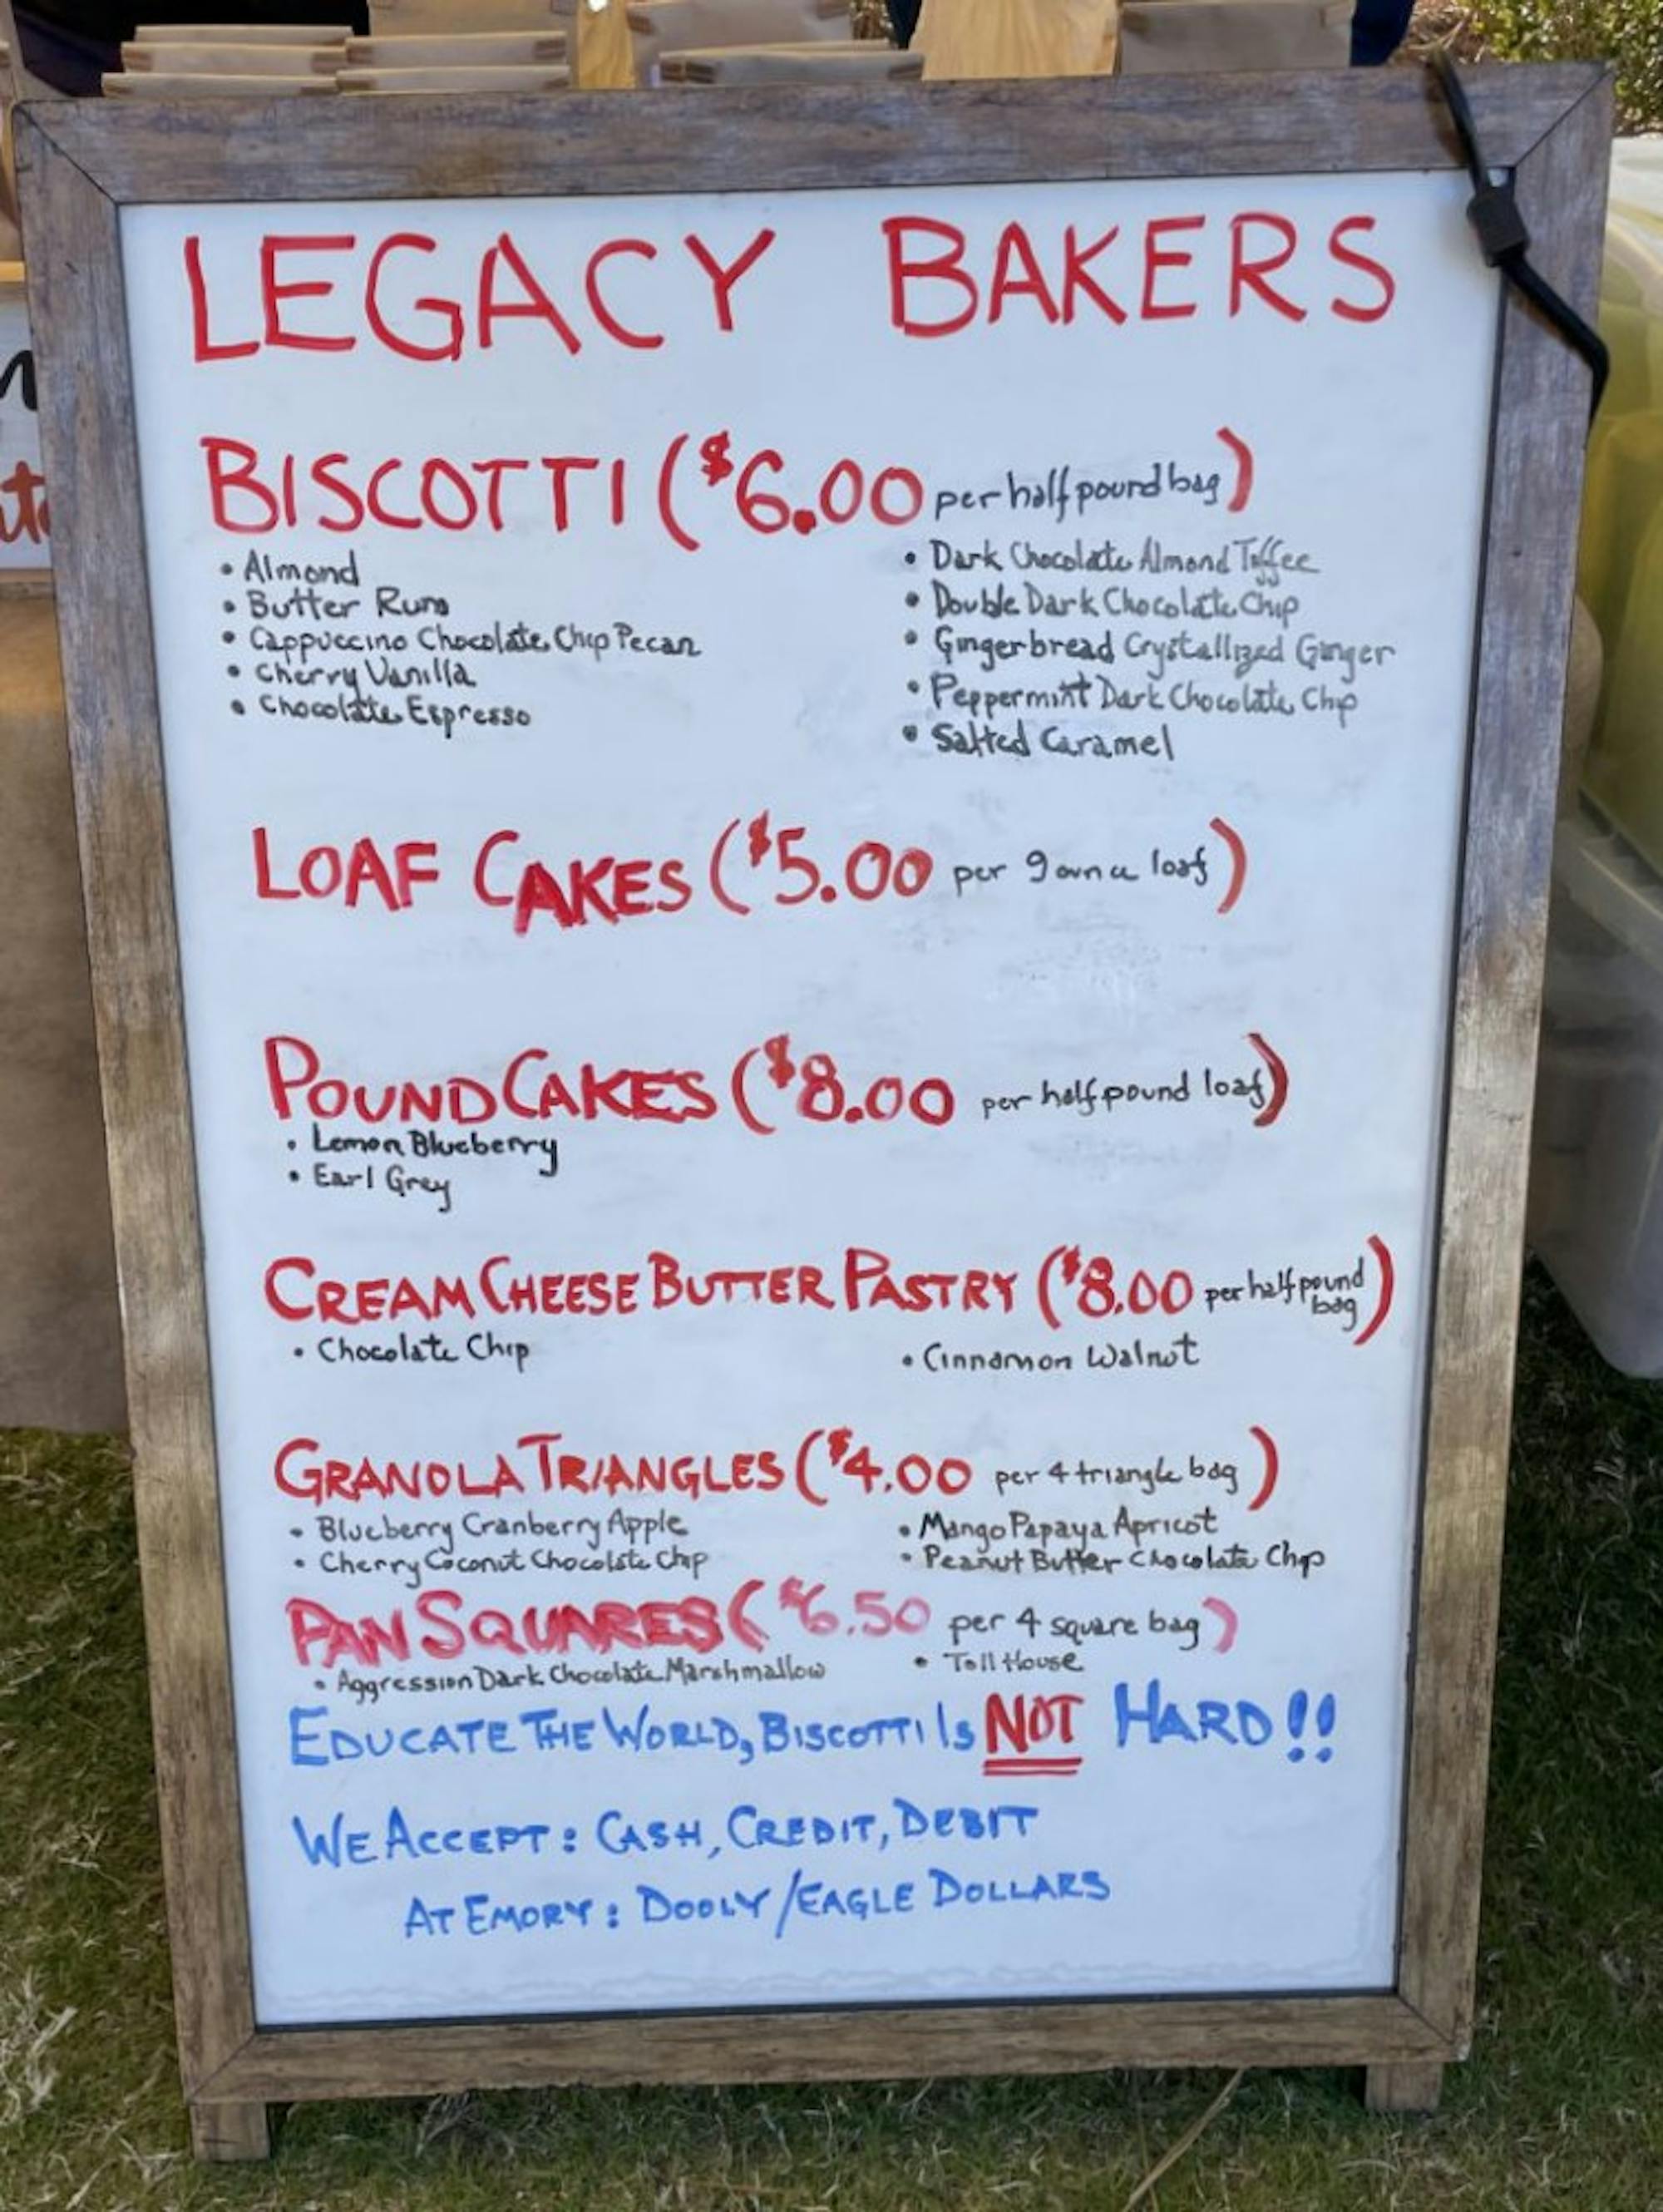 LEGACY BAKERS
BISCOTTI ($6.00 per half pound bag)
• Almond
• Butter Rum
• Cappuccino Chocolate Chip Pecan
• Cherry Vanilla
• Chocolate Espresso
• Dark Chocolate Almond Toffee
• Double Dark Chocolate Chip
• Gingerbread Crystallized Ginger
• Peppermint Dark Chocolate Chip
• Salted Caramel
LOAF CAKES ($5.00 per 9 ounce loaf)
POUND CAKES ($8.00 per half pound loaf)
• Lemon Blueberry
• Earl Grey
CREAM CHEESE BUTTER PASTRY ($8.00 per half pound bag)
• Chocolate Chip
• Cinnamon Walnut
GRANOLA TRIANGLES ($4.00 per 4 triangle bag)
• Blueberry Cranberry Apple
• Cherry Coconut Chocolate Chip
• Mango Papaya Apricot
• Peanut Butter Chocolate Chip
PAN SQUARES ($6.50 per 4 square bag)
• Aggression Dark Chocolate Marshmallow
• Toll House
EDUCATE THE WORLD, BISCOTTI IS NOT HARD!!
WE ACCEPT: CASH, CREDIT, DEBIT
AT EMORY: DOOLY/EAGLE DOLLARS